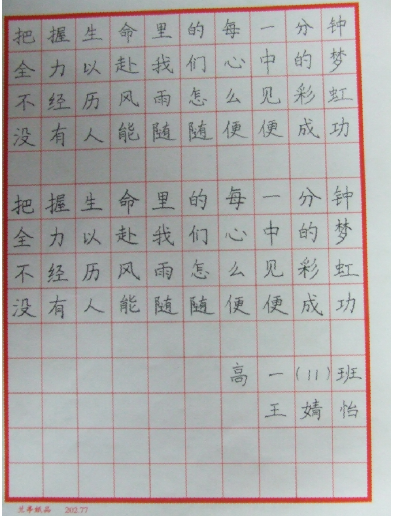 把握生命里的每一分钟
全力以赴我们心中的梦
不经历风雨怎么见彩虹
没有人能随随便便成功
把握生命里的每一分钟
全力以赴我们心中的梦
不经历风雨怎么见彩虹
没有人能随随便便成功
高一(11)班
王婧怡
202.77